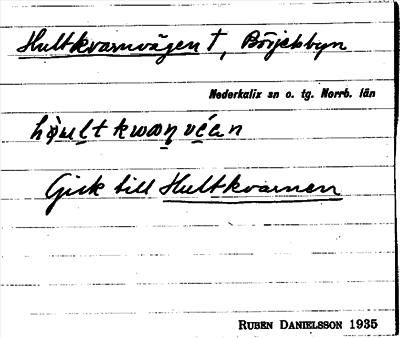 Hultkvarnvägen †, Börjelsbyn
Nederkalix sn o. tg. Norrb. län
Gick till Hultkvarnen
RUBEN DANIELSSON 1935